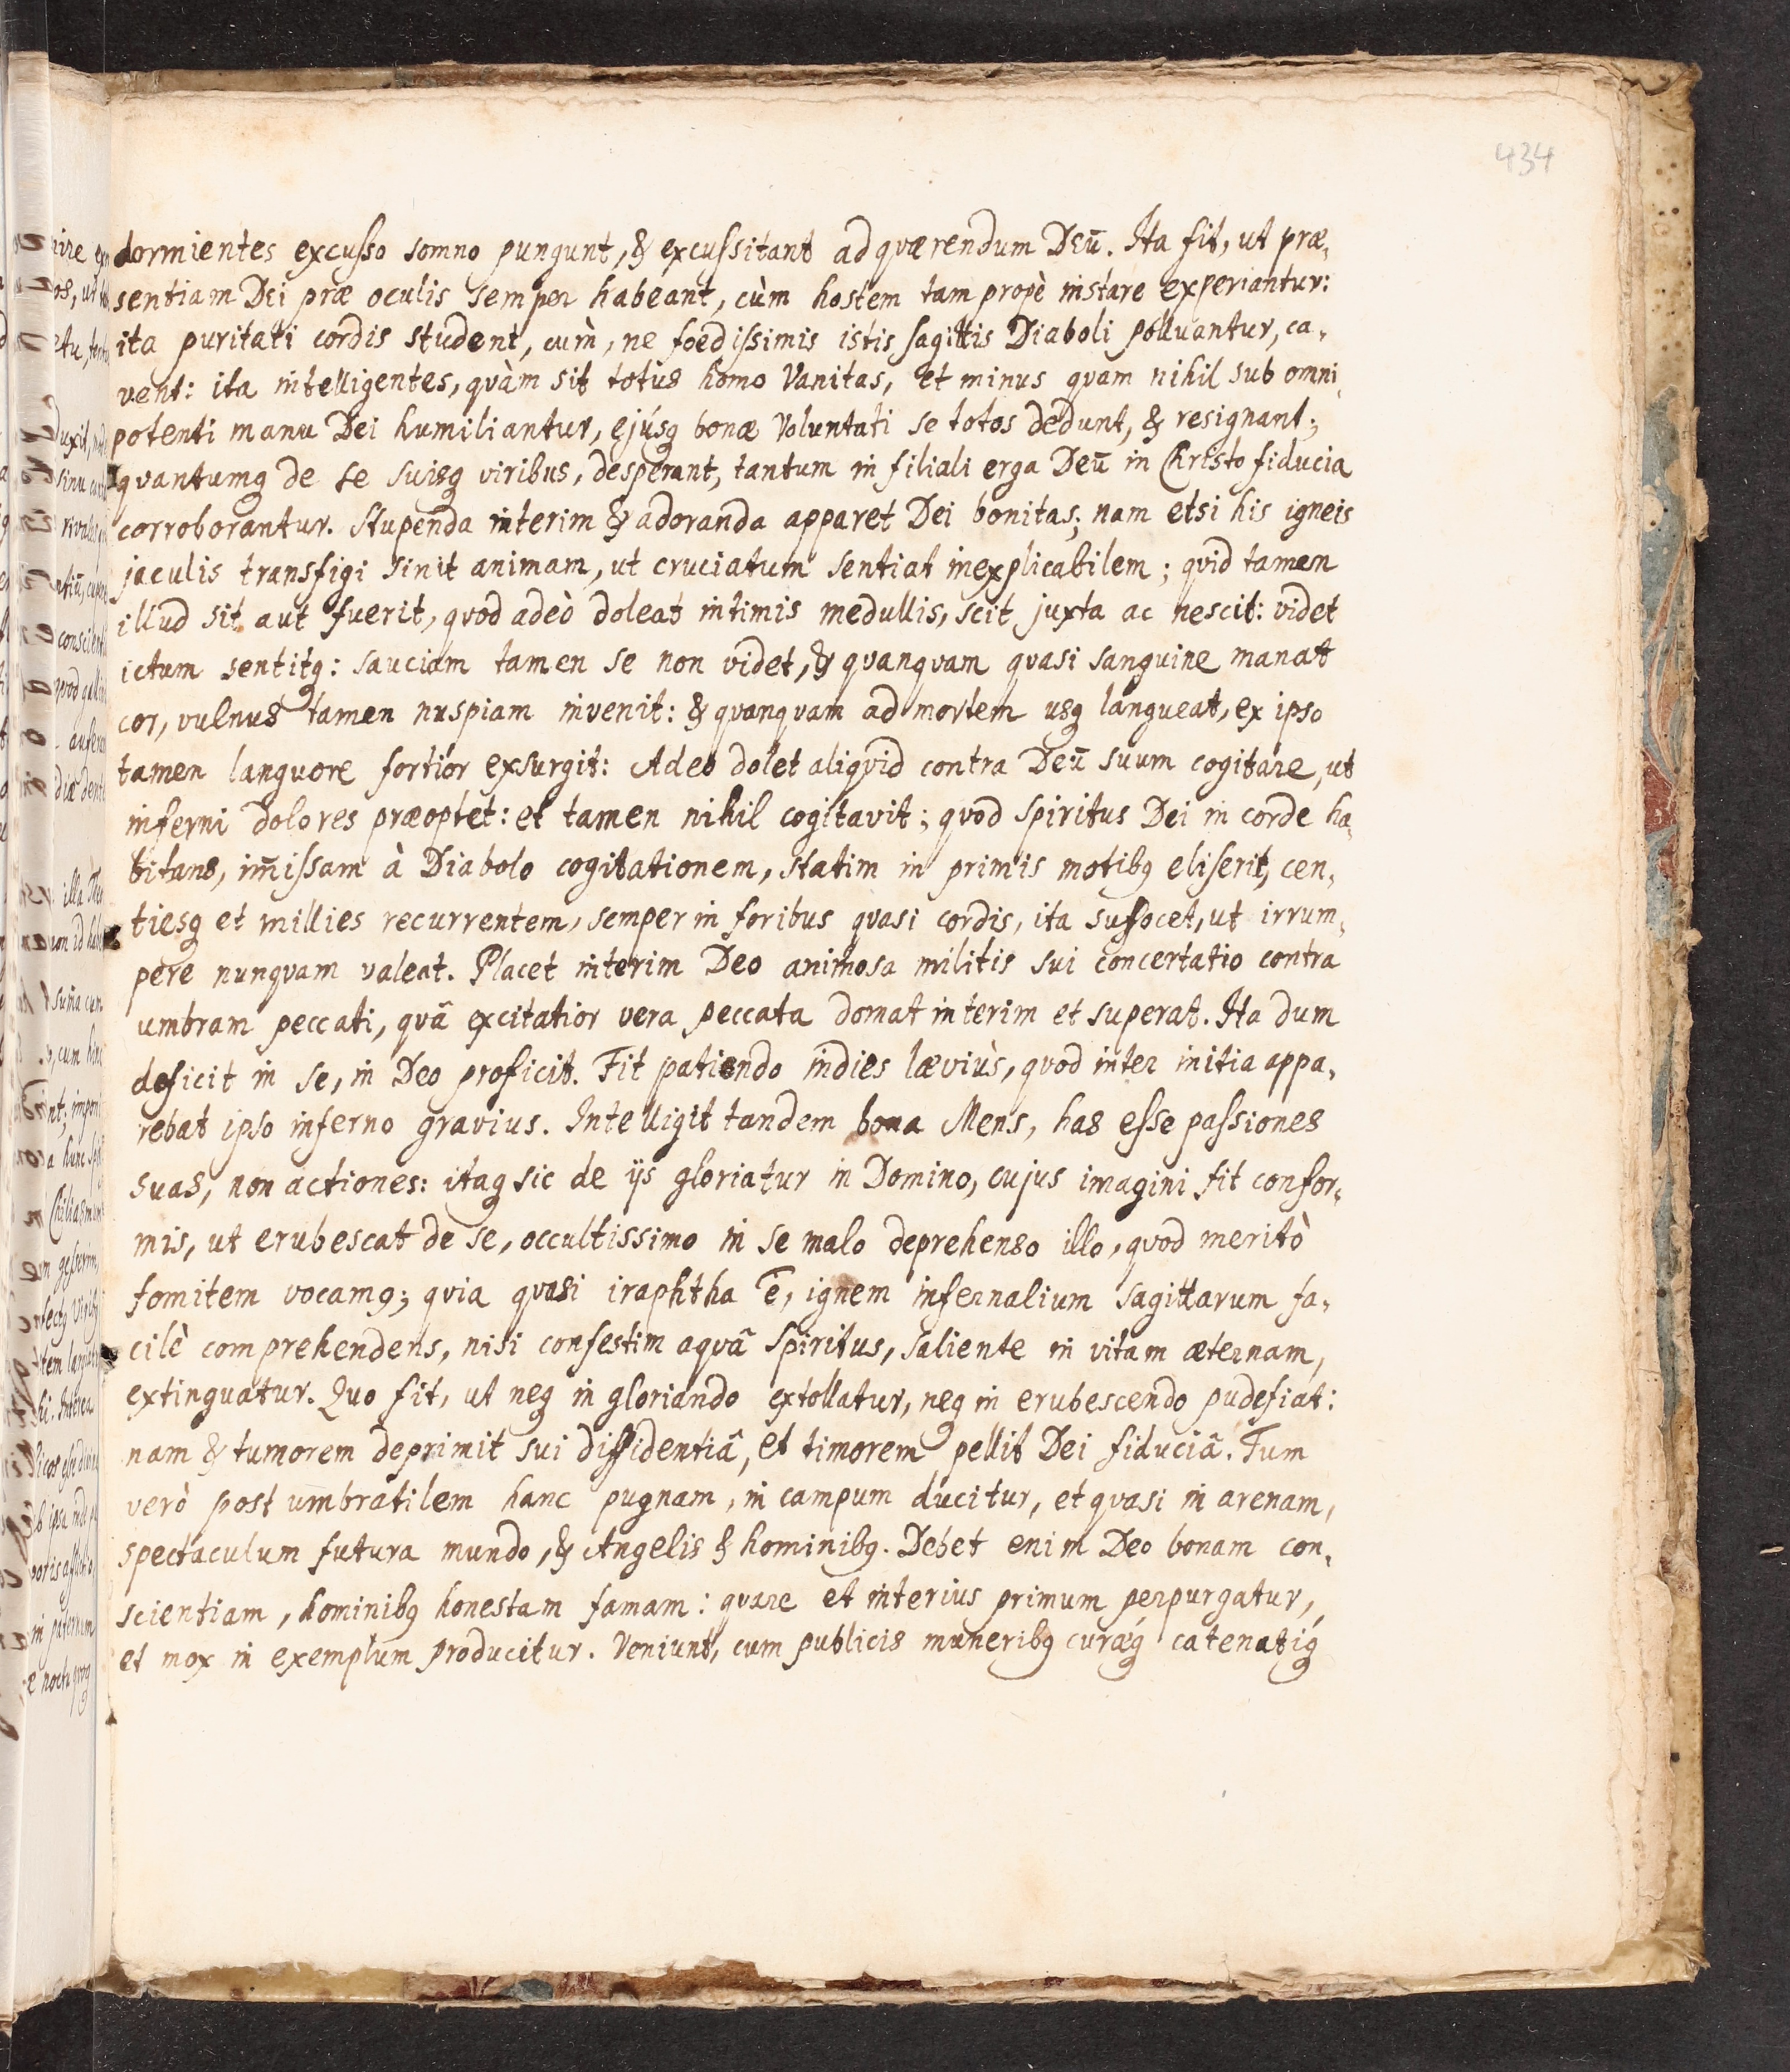 434
dormientes excusso somno pungunt, & excussitant ad quærendum Deū. Ita fit, ut præ-
sentiam Dei præ oculis semper habeant, cùm hostem tam propè instare experiantur:
ita puritati cordis student, cum̀, ne foedissimis istis sagittis Diaboli polluantur, ca-
vent: ita intelligentes, quàm sit totus homo Vanitas, et minus quam nihil sub omni-
potenti manu Dei humiliantur, ejúsq bonæ Voluntati se totos dedunt, & resignant;
quantumq de se suisq viribus, desperant, tantum in filiali erga Deū in Christo fiducia
corroborantur. Stupenda interim & adoranda apparet Dei bonitas; nam etsi his igneis
jaculis transfigi sinit animam, ut cruciatum sentiat inexplicabilem; quid tamen
illud sit aut fuerit, quod adeò doleat intimis medullis, scit juxta ac nescit: videt
ictum sentitq: sauciam tamen se non videt, & quanquam quasi sanguine manat
cor, vulnus tamen nuspiam invenit: & quanquam ad mortem usq langueat, ex ipso
tamen languore fortior exsurgit: Adeo dolet aliquid contra Deū suum cogitare, ut
inferni dolores præoptet: et tamen nihil cogitavit; quod Spiritus Dei in corde ha-
bitans, im̄issam à Diabolo cogitationem, statim in primis motibq eliserit, cen-
tiesq et millies recurrentem, semper in foribus quasi cordis, ita suffocet, ut irrum-
pere nunquam valeat. Placet interim Deo animosa militis sui concertatio contra
umbram peccati, quâ excitatior vera peccata domat interim et superat. Ita dum
deficit in se, in Deo proficit. Fit patiendo indies læviùs, quod inter initia appa-
rebat ipso inferno gravius. Intelligit tandem bona Mens, has esse passiones
suas, non actiones: itaq sic de ijs gloriatur in Domino, cujus imagini fit confor-
mis, ut erubescat de se, occultissimo in se malo deprehenso illo, quod meritò
fomitem vocamq; quia quasi iraphtha ē, ignem infernalium sagittarum fa-
cilè comprehendens, nisi confestim aquâ Spiritus, saliente in vitam æternam,
extinguatur. Quo fit, ut neq in gloriando extollatur, neq in erubescendo pudefiat:
nam & tumorem deprimit sui diffidentiâ, et timorem pellit Dei fiduciâ. Tum
verò post umbratilem hanc pugnam, in campum ducitur, et quasi in arenam,
spectaculum futura mundo, & Angelis & hominibq. Debet enim Deo bonam con-
scientiam, hominibq honestam famam: quare et interius primum perpurgatur,
et mox in exemplum producitur. Veniunt, cum publicis muneribq curæq́ catenatiq́